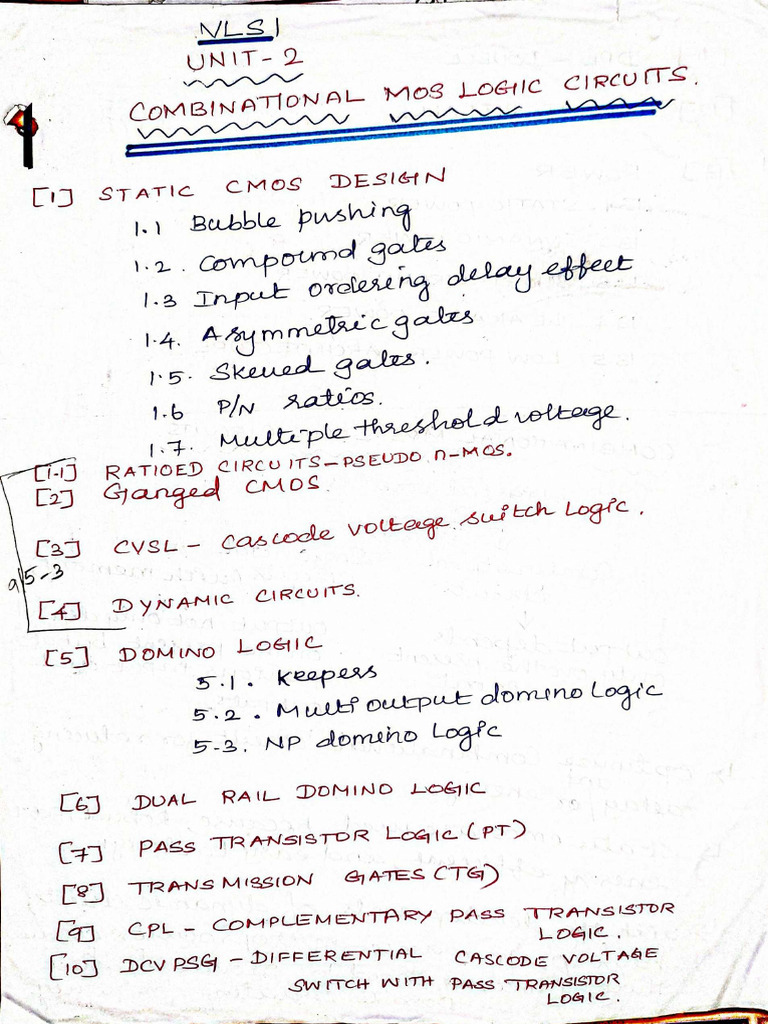 VLSI
UNIT-2
COMBINATIONAL MOS LOGIC CIRCUITS.
[1] STATIC CMOS DESIGN
1.1 Bubble pushing
1.2. Compound gates
1.3 Input ordering delay effect
1.4. Asymmetric gates
1.5. Skewed gates.
1.6 P/N ratios.
1.7. Multiple threshold voltage.
[1-1] RATIOED CIRCUITS-PSEUDO n-MOS.
[2] Ganged CMOS.
[3] CVSL - Cascode voltage switch Logic.
5-3
[4] DYNAMIC CIRCUITS.
[5] DOMINO LOGIC
5.1. Keepers
5.2. Multi output domino Logic
5-3. NP domino Logic
[6] DUAL RAIL DOMINO LOGIC
[7] PASS TRANSISTOR LOGIC (PT)
[8] TRANSMISSION GATES (TG)
[9] CPL - COMPLEMENTARY PASS TRANSISTOR
LOGIC.
[10] DCVPSG - DIFFERENTIAL CASCODE VOLTAGE
SWITCH WITH PASS TRANSISTOR
LOGIC.